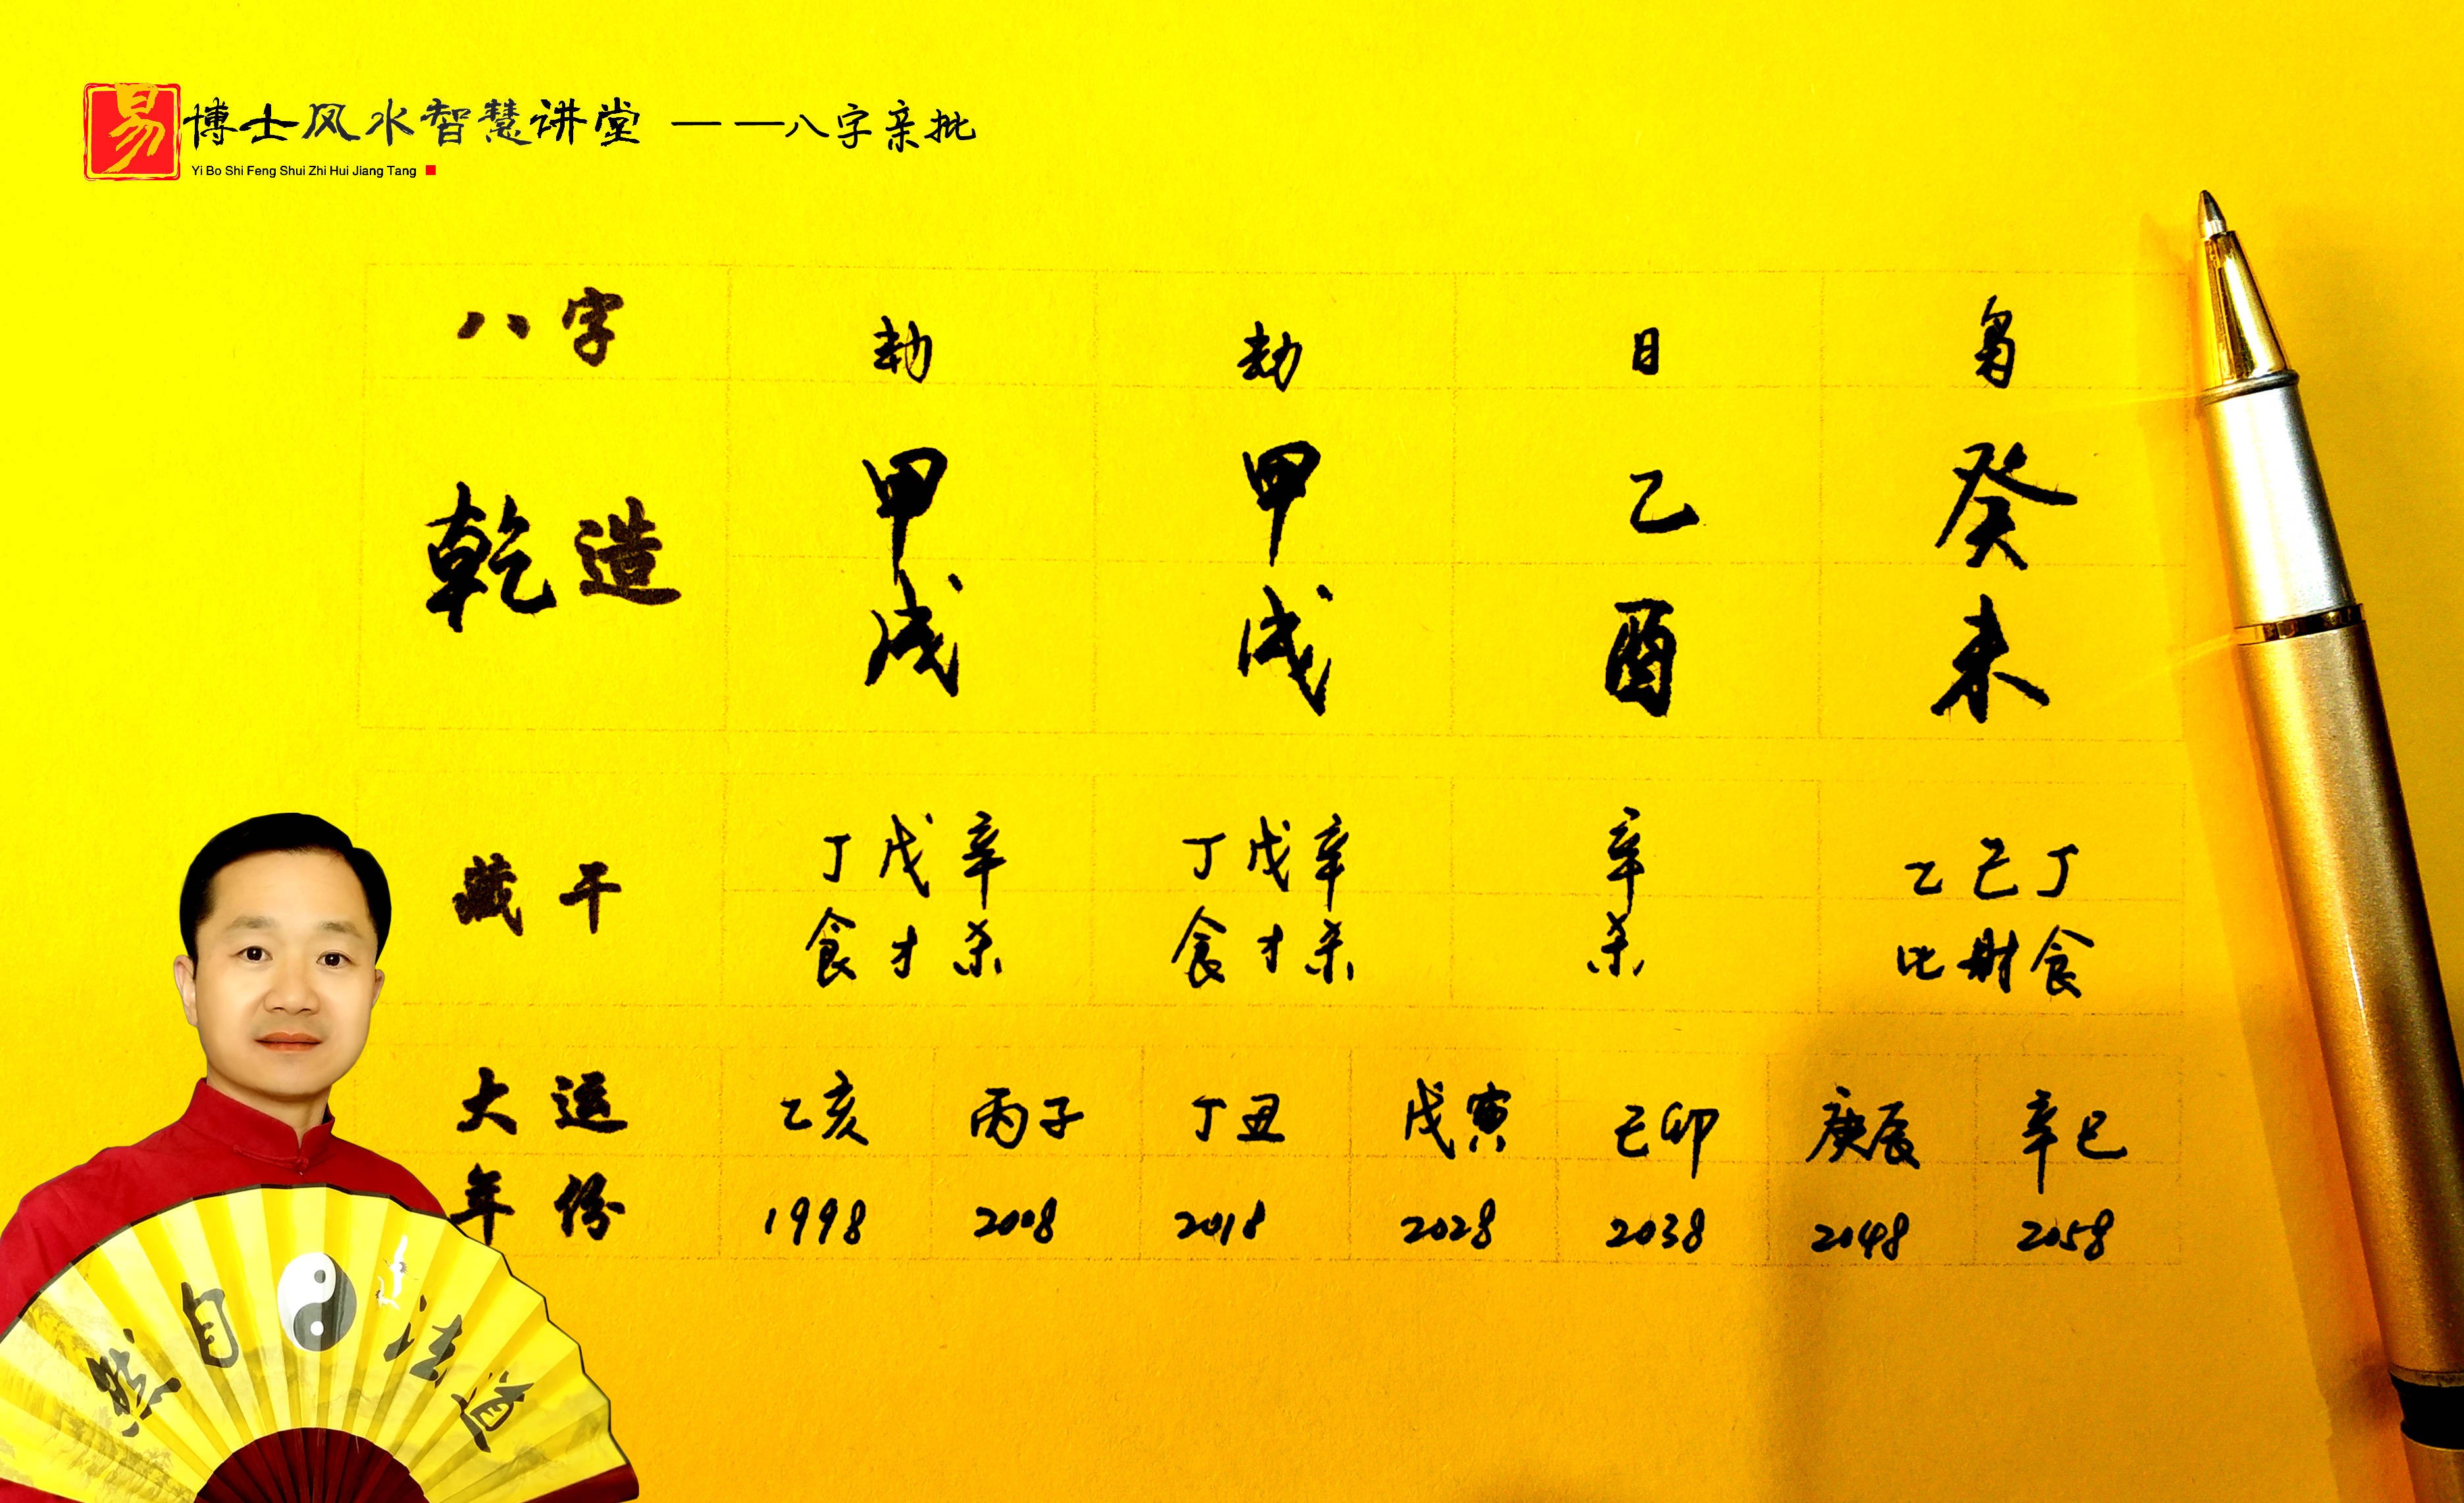 易 博士风水智慧讲堂 ——八字亲批
Yi Bo Shi Feng Shui Zhi Hui Jiang Tang
八字 劫 劫 日 枭
乾造 甲 甲 乙 癸
戌 戌 酉 未
藏干 丁戊辛 丁戊辛 辛 乙己丁
食才杀 食才杀 杀 比财食
大运 乙亥 丙子 丁丑 戊寅 己卯 庚辰 辛巳
年份 1998 2008 2018 2028 2038 2048 2058
然自法道